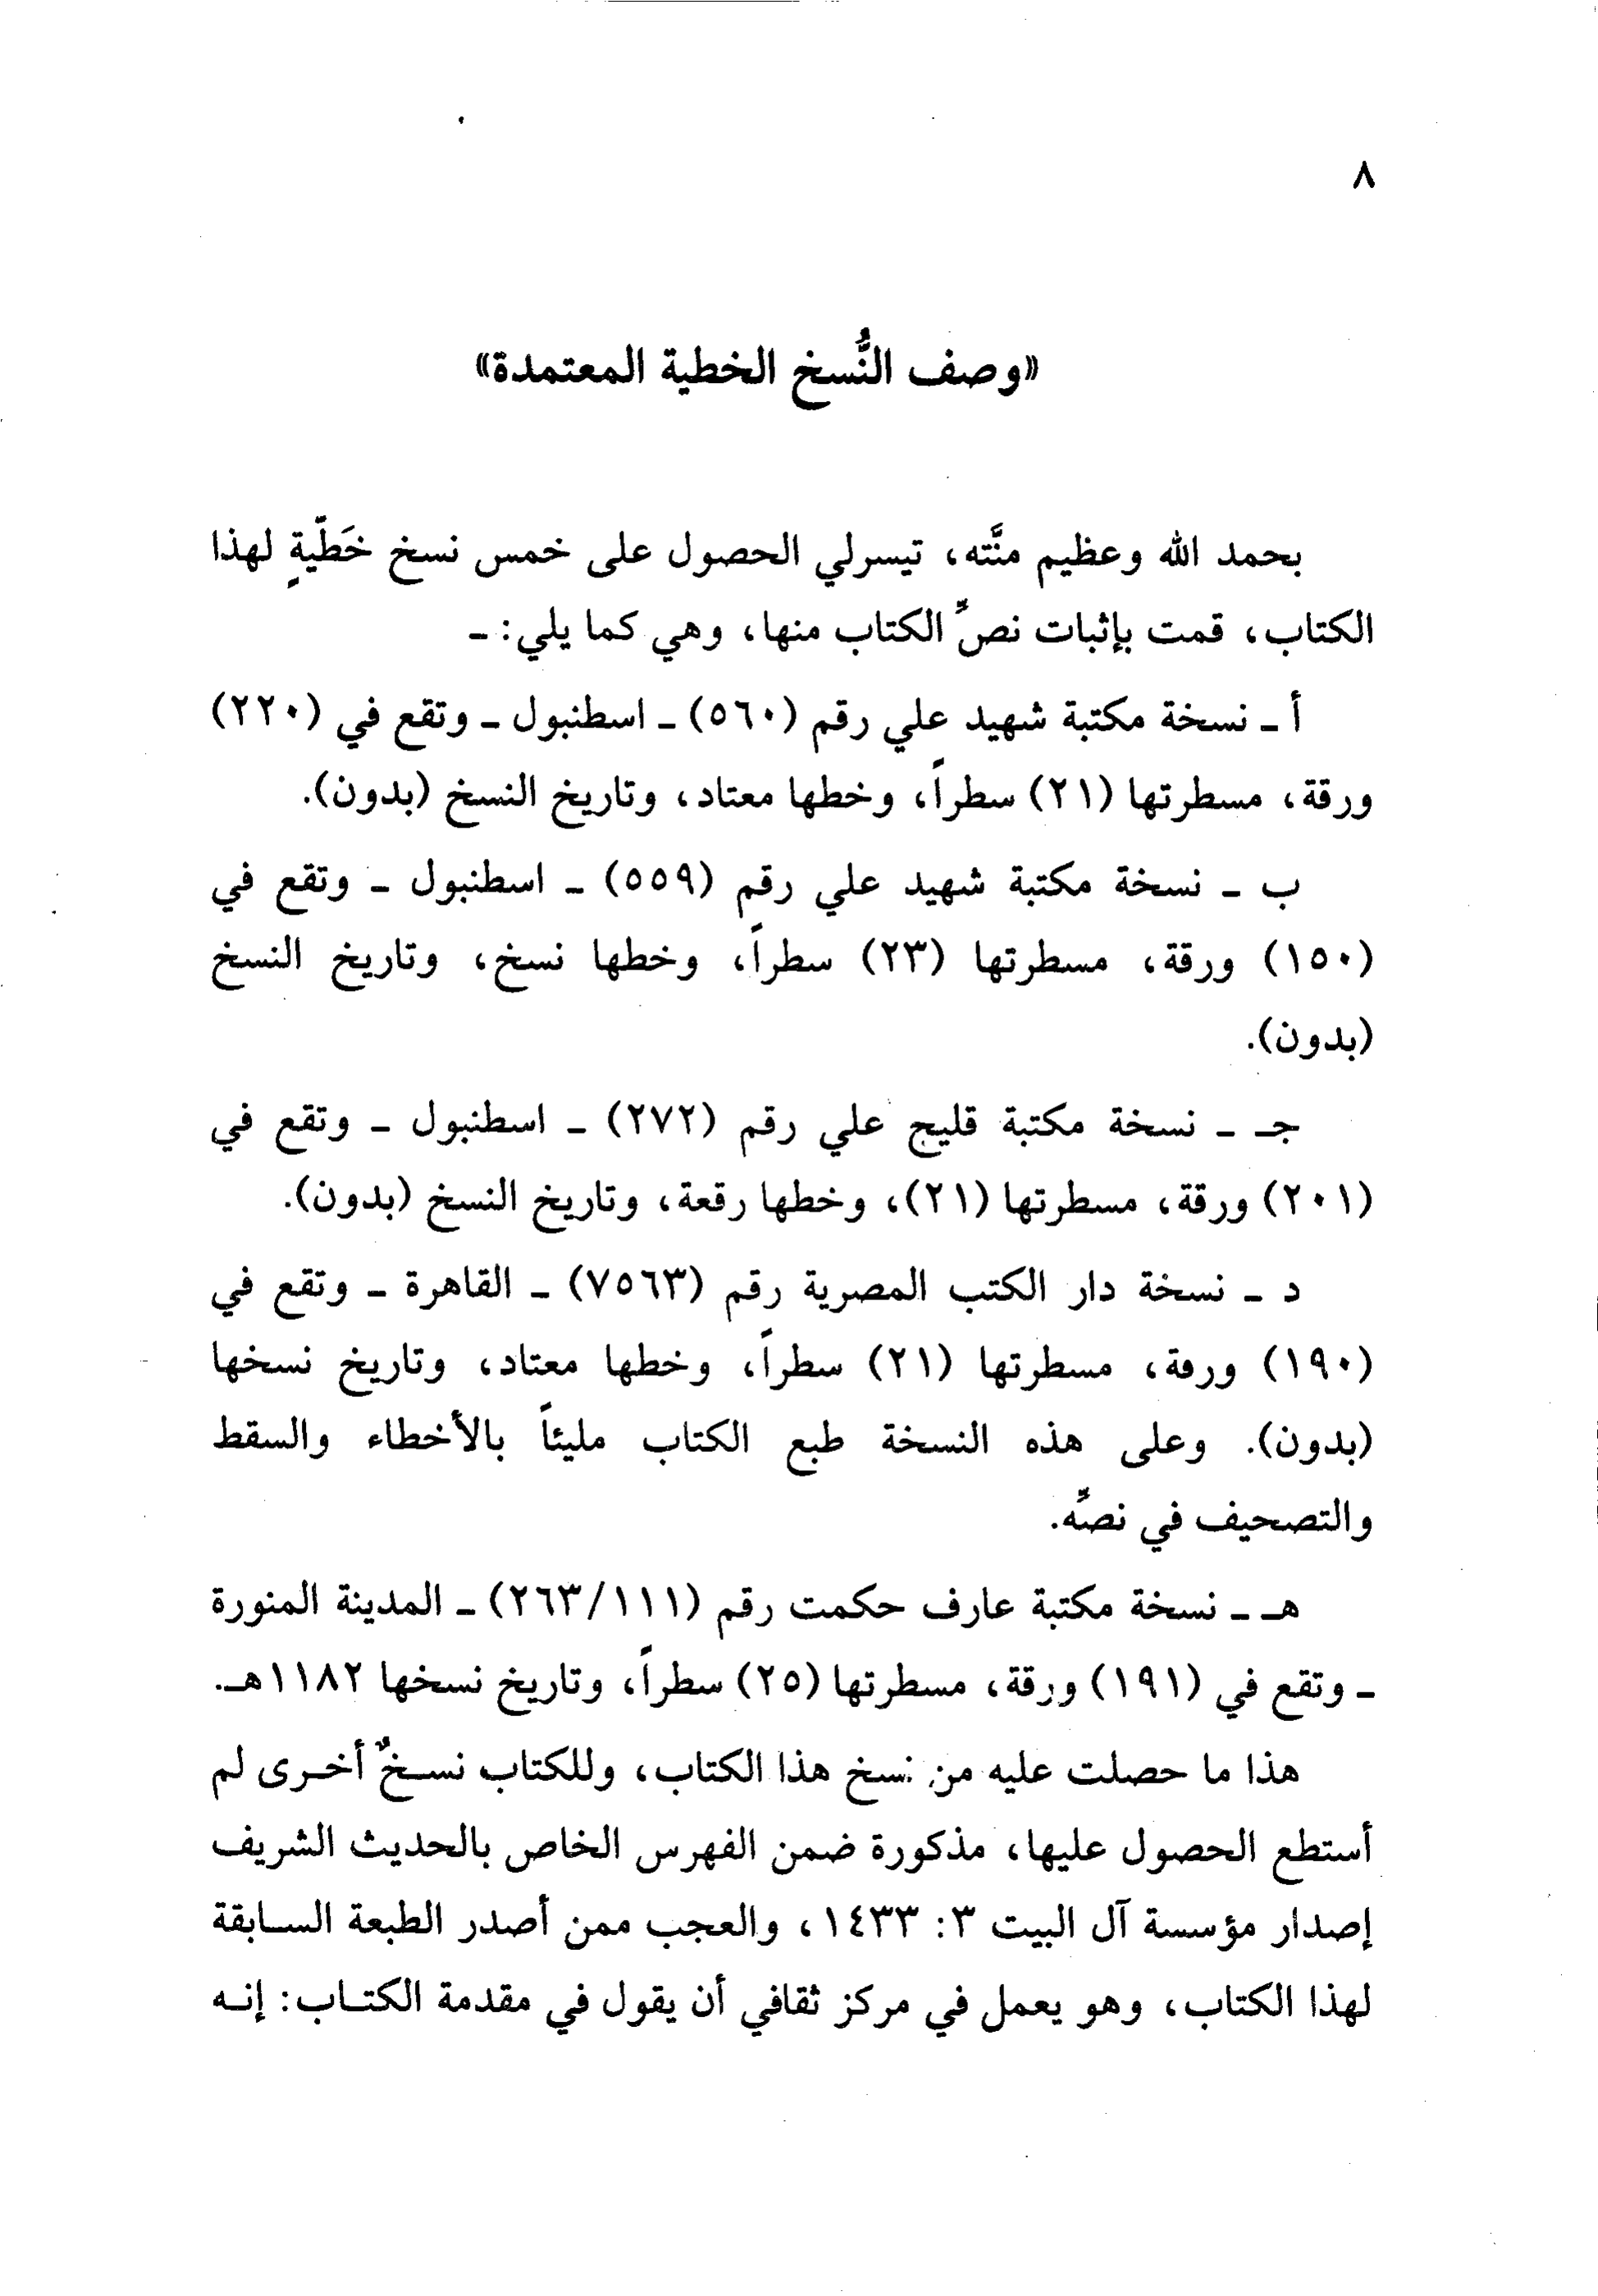 ٨
«وصف النُّسخ الخطية المعتمدة»
بحمد الله وعظيم منَّته، تيسرلي الحصول على خمس نسخ خَطّيةٍ لهذا
الكتاب، قمت بإثبات نصِّ الكتاب منها، وهي كما يلي: ـ
أ ـ نسخة مكتبة شهيد علي رقم (٥٦٠) ـ اسطنبول ـ وتقع في (٢٢٠)
ورقة، مسطرتها (٢١) سطراً، وخطها معتاد، وتاريخ النسخ (بدون).
ب ـ نسخة مكتبة شهيد علي رقم (٥٥٩) ـ اسطنبول ـ وتقع في
(١٥٠) ورقة، مسطرتها (٢٣) سطراً، وخطها نسخ، وتاريخ النسخ
(بدون).
جـ ـ نسخة مكتبة قليج علي رقم (٢٧٢) ـ اسطنبول ـ وتقع في
(٢٠١) ورقة، مسطرتها (٢١)، وخطها رقعة، وتاريخ النسخ (بدون).
د ـ نسخة دار الكتب المصرية رقم (٧٥٦٣) ـ القاهرة ـ وتقع في
(١٩٠) ورقة، مسطرتها (٢١) سطراً، وخطها معتاد، وتاريخ نسخها
(بدون). وعلى هذه النسخة طبع الكتاب مليئاً بالأخطاء والسقط
والتصحيف في نصِّه.
هـ ـ نسخة مكتبة عارف حكمت رقم (٢٦٣/١١١) ـ المدينة المنورة
ـ وتقع في (١٩١) ورقة، مسطرتها (٢٥) سطراً، وتاريخ نسخها ١١٨٢هـ.
هذا ما حصلت عليه من نسخ هذا الكتاب، وللكتاب نسـخٌ أخـرى لم
أستطع الحصول عليها، مذكورة ضمن الفهرس الخاص بالحديث الشريف
إصدار مؤسسة آل البيت ٣: ١٤٣٣، والعجب ممن أصدر الطبعة السـابقة
لهذا الكتاب، وهو يعمل في مركز ثقافي أن يقول في مقدمة الكتـاب: إنـه